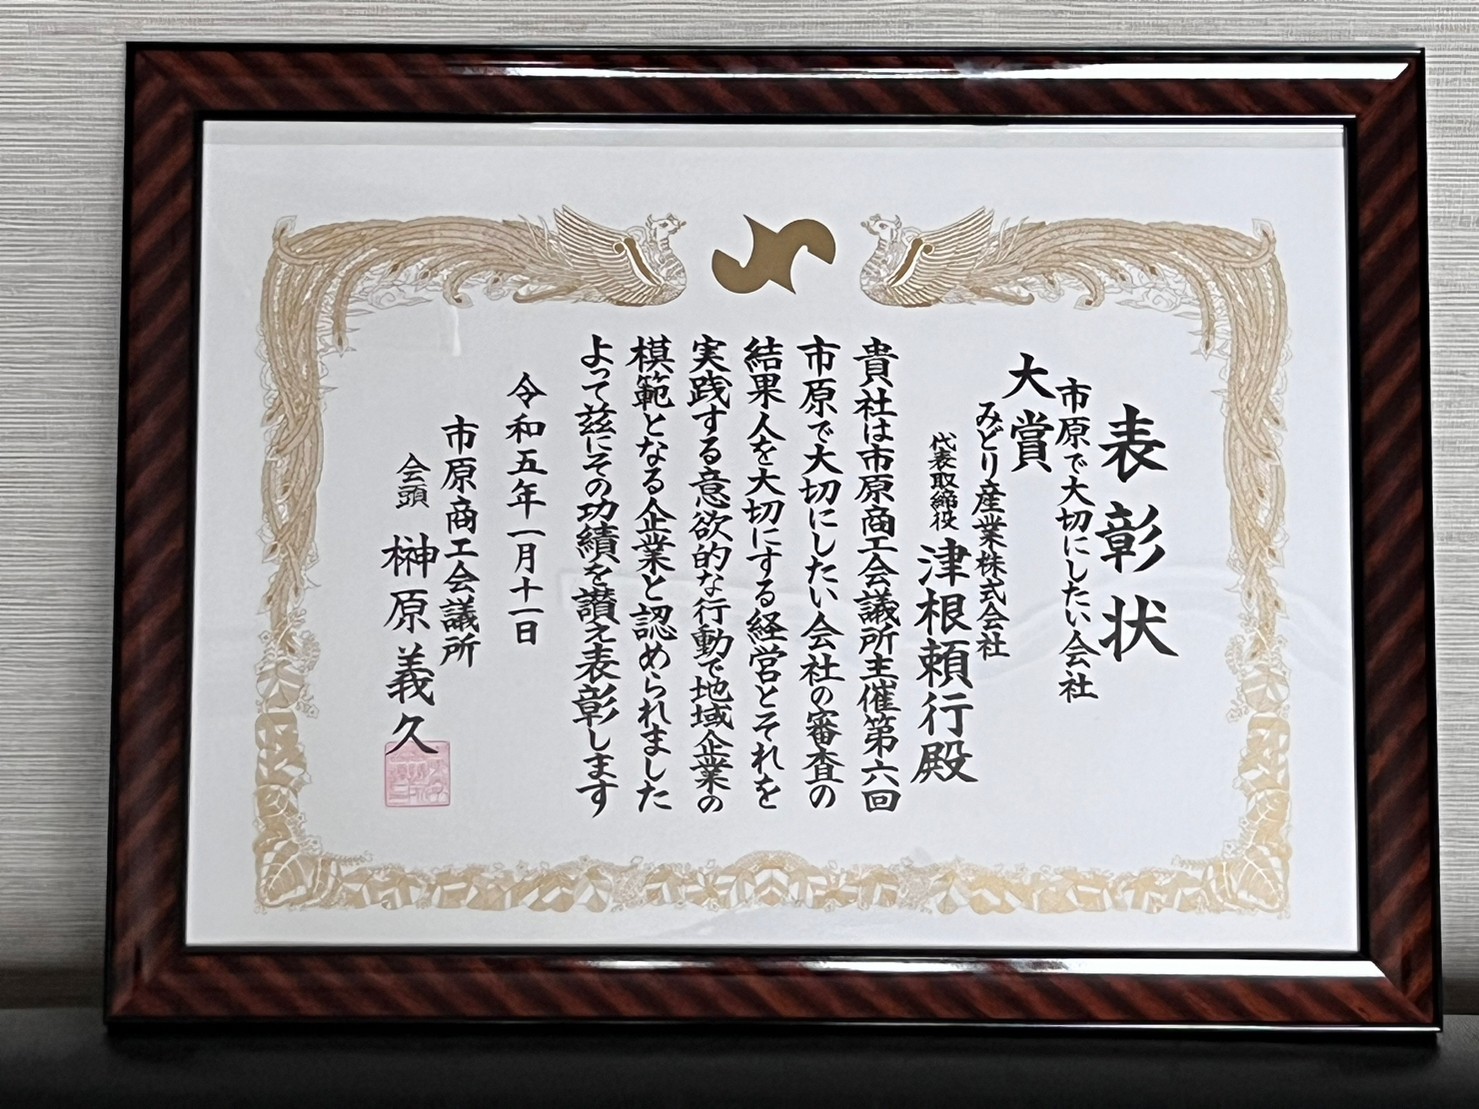 表彰状
市原で大切にしたい会社
大賞
みどり産業株式会社
代表取締役 津根頼行殿
貴社は市原商工会議所主催第六回
市原で大切にしたい会社の審査の
結果人を大切にする経営とそれを
実践する意欲的な行動で地域企業の
模範となる企業と認められました
よって茲にその功績を讃え表彰します
令和五年一月十一日
市原商工会議所
会頭 榊原義久